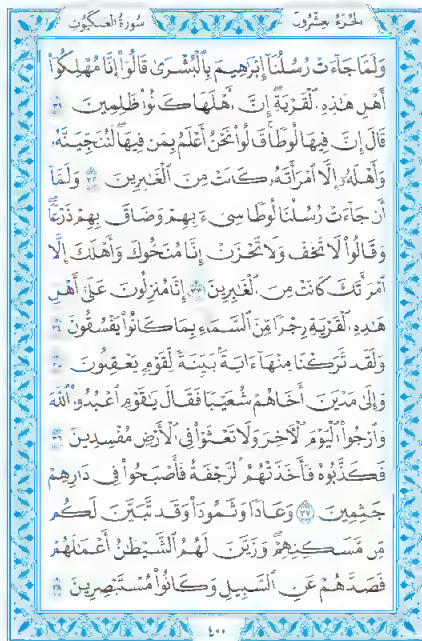 الجزء العشرون سورة العنكبوت
وَلَمَّا جَاءَتْ رُسُلُنَا إِبْرَاهِيمَ بِالْبُشْرَىٰ قَالُوا إِنَّا مُهْلِكُوا
أَهْلِ هَٰذِهِ الْقَرْيَةِ ۖ إِنَّ أَهْلَهَا كَانُوا ظَالِمِينَ ٣١
قَالَ إِنَّ فِيهَا لُوطًا ۚ قَالُوا نَحْنُ أَعْلَمُ بِمَن فِيهَا ۖ لَنُنَجِّيَنَّهُ
وَأَهْلَهُ إِلَّا امْرَأَتَهُ كَانَتْ مِنَ الْغَابِرِينَ ٣٢ وَلَمَّا
أَن جَاءَتْ رُسُلُنَا لُوطًا سِيءَ بِهِمْ وَضَاقَ بِهِمْ ذَرْعًا
وَقَالُوا لَا تَخَفْ وَلَا تَحْزَنْ ۖ إِنَّا مُنَجُّوكَ وَأَهْلَكَ إِلَّا
امْرَأَتَكَ كَانَتْ مِنَ الْغَابِرِينَ ٣٣ إِنَّا مُنزِلُونَ عَلَىٰ أَهْلِ
هَٰذِهِ الْقَرْيَةِ رِجْزًا مِّنَ السَّمَاءِ بِمَا كَانُوا يَفْسُقُونَ ٣٤
وَلَقَد تَّرَكْنَا مِنْهَا آيَةً بَيِّنَةً لِّقَوْمٍ يَعْقِلُونَ ٣٥
وَإِلَىٰ مَدْيَنَ أَخَاهُمْ شُعَيْبًا فَقَالَ يَا قَوْمِ اعْبُدُوا اللَّهَ
وَارْجُوا الْيَوْمَ الْآخِرَ وَلَا تَعْثَوْا فِي الْأَرْضِ مُفْسِدِينَ ٣٦
فَكَذَّبُوهُ فَأَخَذَتْهُمُ الرَّجْفَةُ فَأَصْبَحُوا فِي دَارِهِمْ
جَاثِمِينَ ٣٧ وَعَادًا وَثَمُودَ وَقَد تَّبَيَّنَ لَكُم
مِّن مَّسَاكِنِهِمْ ۖ وَزَيَّنَ لَهُمُ الشَّيْطَانُ أَعْمَالَهُمْ
فَصَدَّهُمْ عَنِ السَّبِيلِ وَكَانُوا مُسْتَبْصِرِينَ ٣٨
٤٠٠